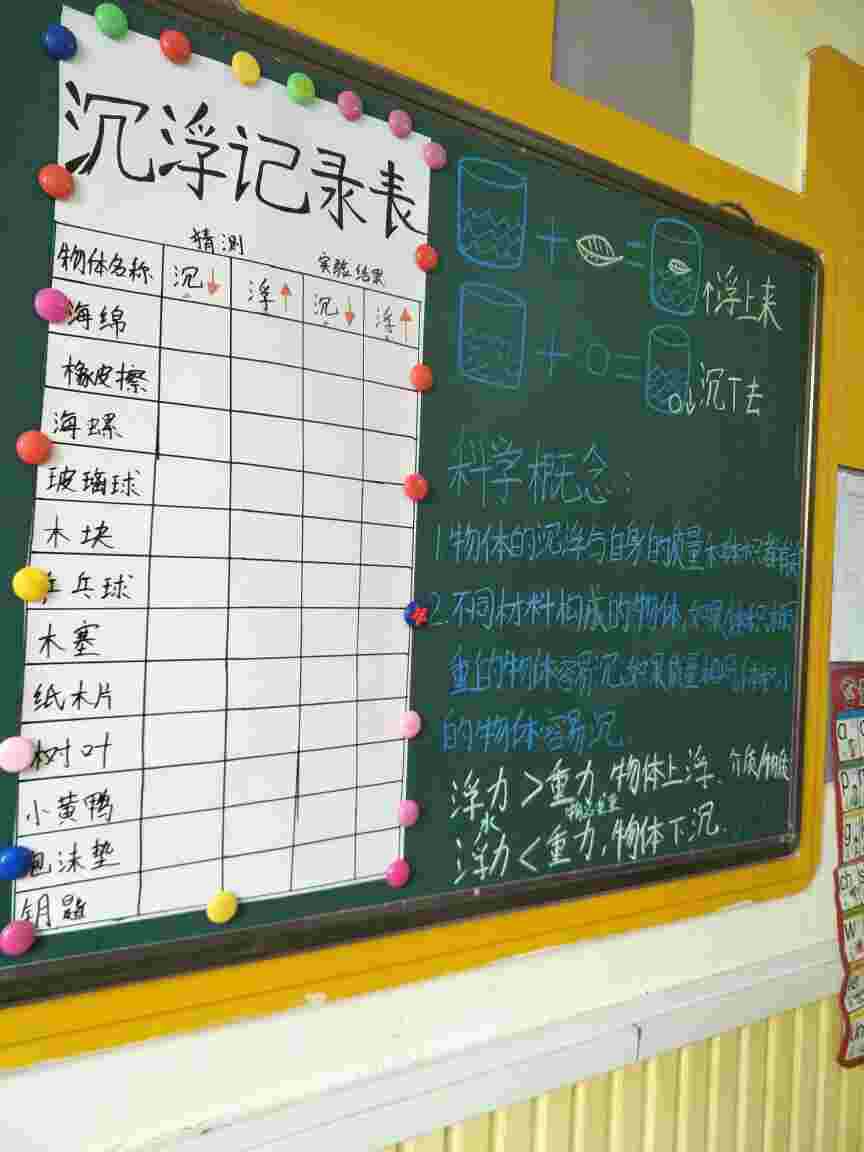 沉浮记录表
猜测 实验结果
物体名称 沉↓ 浮↑ 沉↓ 浮↑
海绵
橡皮擦
海螺
玻璃球
木块
乒乓球
木塞
纸木片
树叶
小黄鸭
泡沫垫
钥匙
+ = ↑浮上来
+ = ↓沉下去
科学概念:
1 物体的沉浮与自身的质量和体积都有关
2.不同材料构成的物体,如果体积相同
重的物体容易沉,如果质量相同,体积小
的物体容易沉.
浮力>重力,物体上浮、介质/物质
水
浮力<重力,物体下沉.